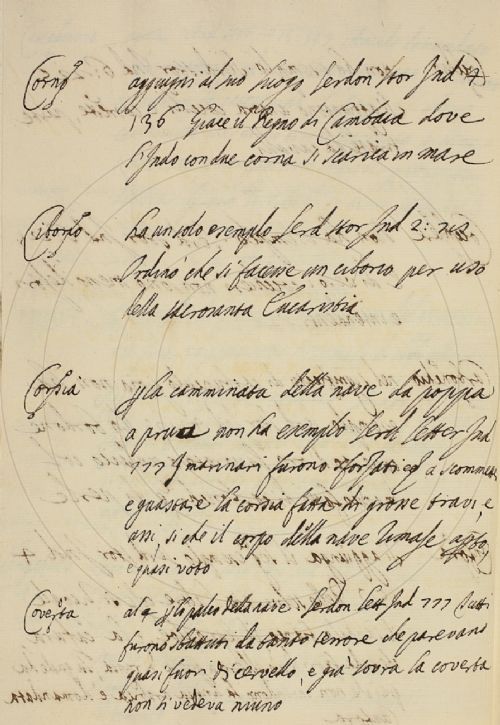 Corno aggiugni al suo luogo Serdon stor Ind 4
136 Giace il Regno di Cambaia dove
l'Indo con due corna si scarica in mare
Ciborio ha un solo esempio Serd stor Ind 2:
Ordinò che si facesse un ciborio per uso
della sacrosanta Eucaristia
Corsia p la camminata della nave da poppa
a prua non ha esempio Serd letter Ind
777 I marinari furono sforzati a scommett
e guastare la corsia fatta di grosse travi, e
assi, si che il corpo della nave rimase apto,
e quasi voto
Coverta al 4 p lo palco della nave Serdon lett Ind 777 Tutti
furono sbattuti da tanto terrore che parevano
quasi fuori di cervello, e già sovra la coverta
non si vedeva niuno